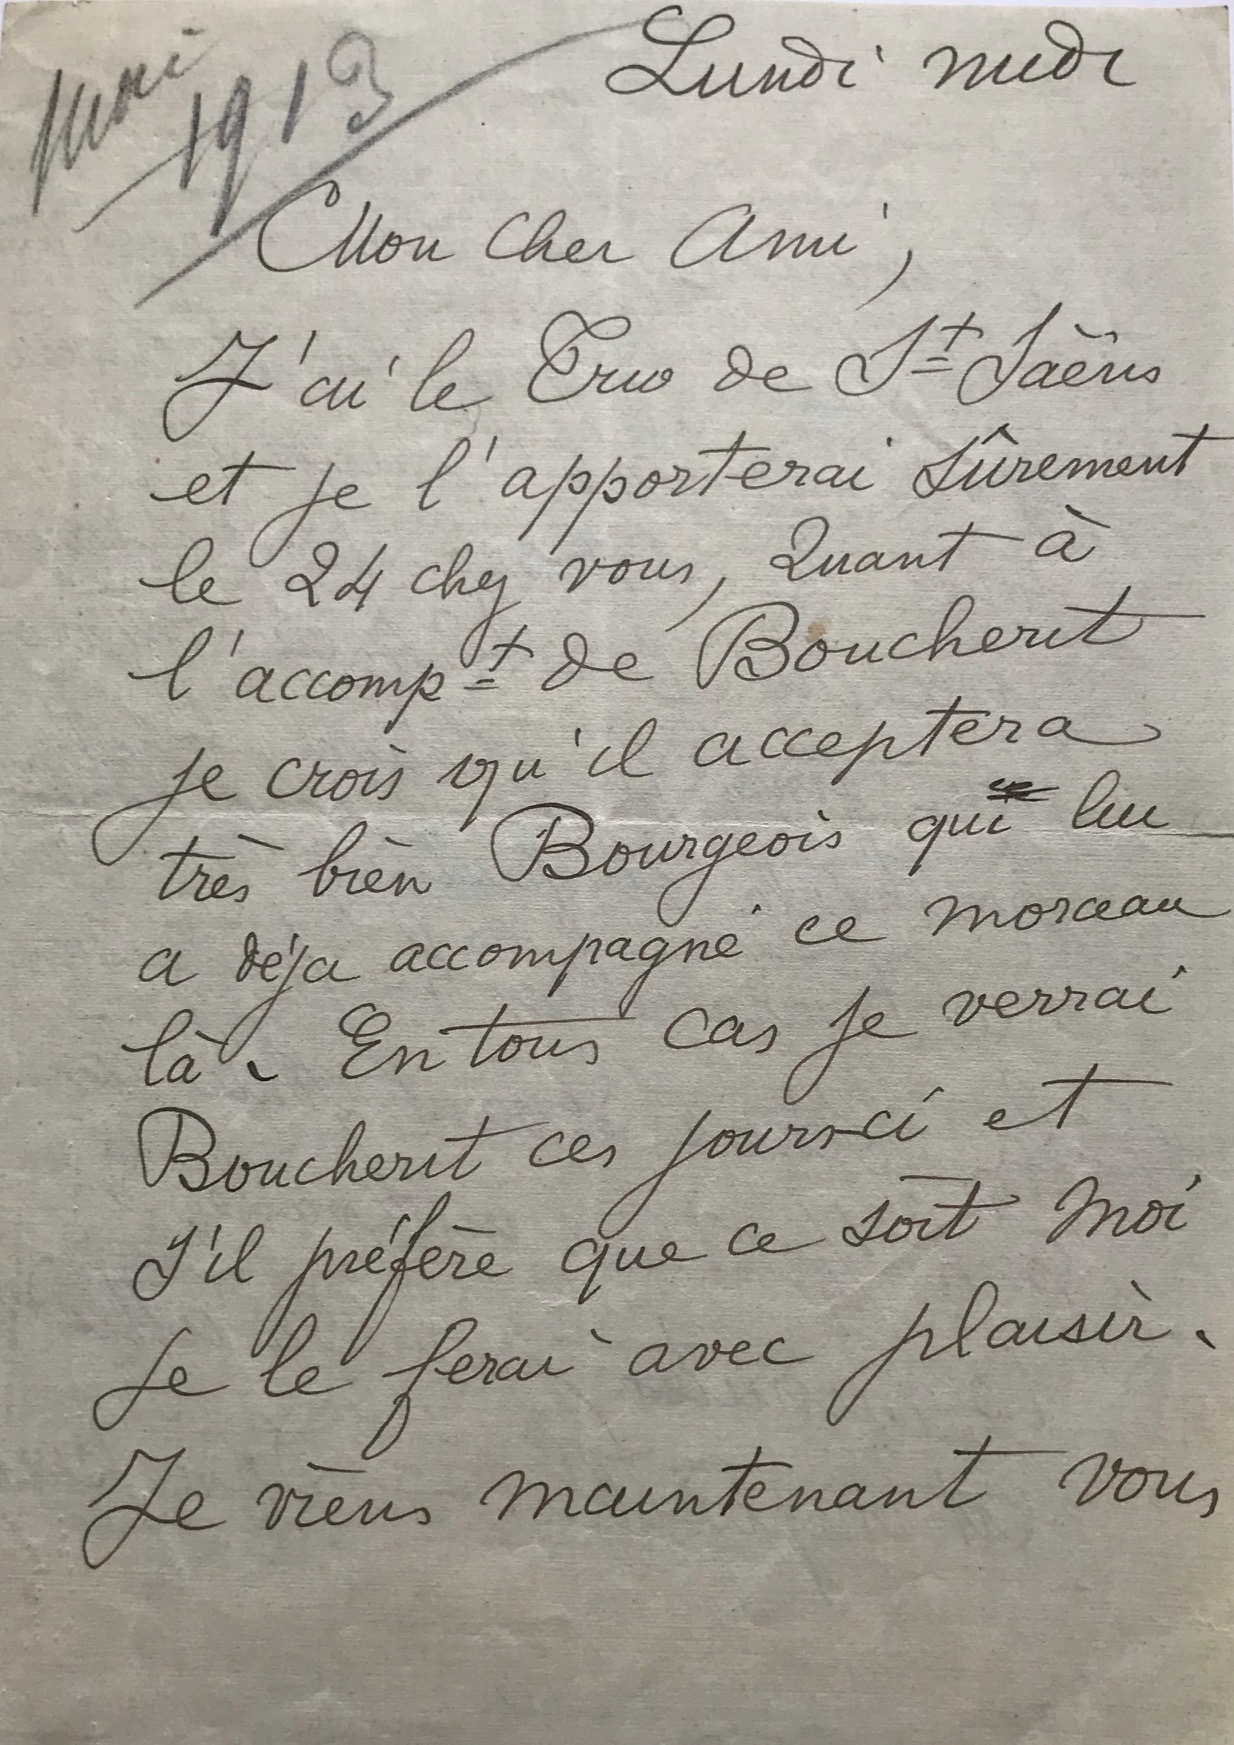 Mai
1913
Lundi midi
Mon cher Ami,
J'ai le Trio de St Saëns
et je l'apporterai sûrement
le 24 chez vous, Quant à
l'accompt de Boucherit
je crois qu'il acceptera
très bien Bourgeois qui lui
a déja accompagné ce morceau
là. En tous cas je verrai
Boucherit ces jours-ci et
s'il préfère que ce soit moi
je le ferai avec plaisir.
Je viens maintenant vous